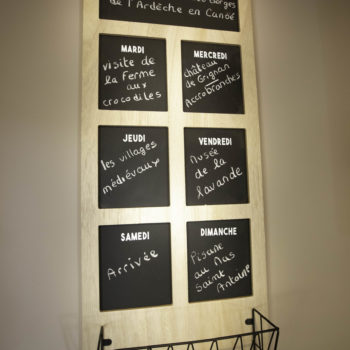 de l'Ardèche en Canoé
MARDI
visite de
la ferme
aux
crocodiles
MERCREDI
château
de Grignan
Accrobranches
JEUDI
les villages
médiévaux
VENDREDI
Musée
de la
lavande
SAMEDI
Arrivée
DIMANCHE
Piscine
au Mas
Saint
Antoine